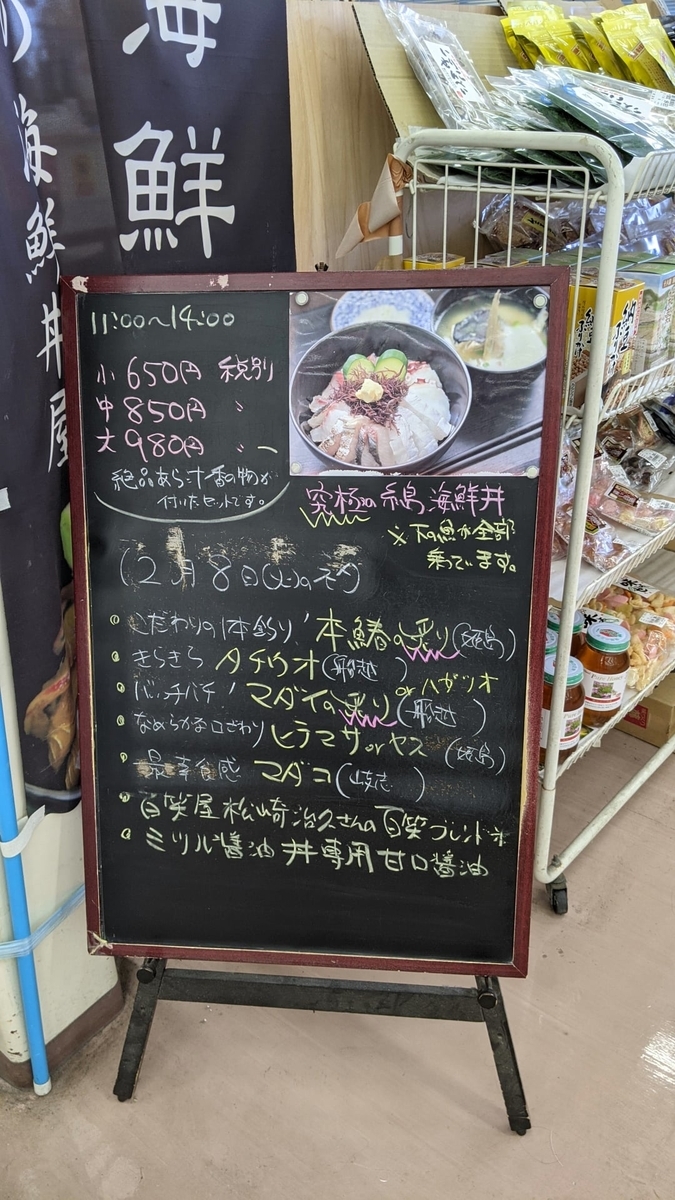 海鮮
海鮮丼屋
11:00〜14:00
小 650円 税別
中 850円 〃
大 980円 〃
絶品あら汁+香の物が
付いたセットです。
究極の糸島海鮮丼
※下の魚が全部
乗っています。
12月8日(土)のネタ
こだわりの1本釣り!本鰆の炙り(姫島)
きらきら タチウオ(船越)
バッチバチ!マダイの炙り or ハガツオ(船越)
なめらかな口ざわり ヒラマサorヤズ(姫島)
最幸食感 マダコ(岐志)
百笑屋 松崎治久さんの百笑ブレンド米
ミツル醤油 丼専用甘口醤油